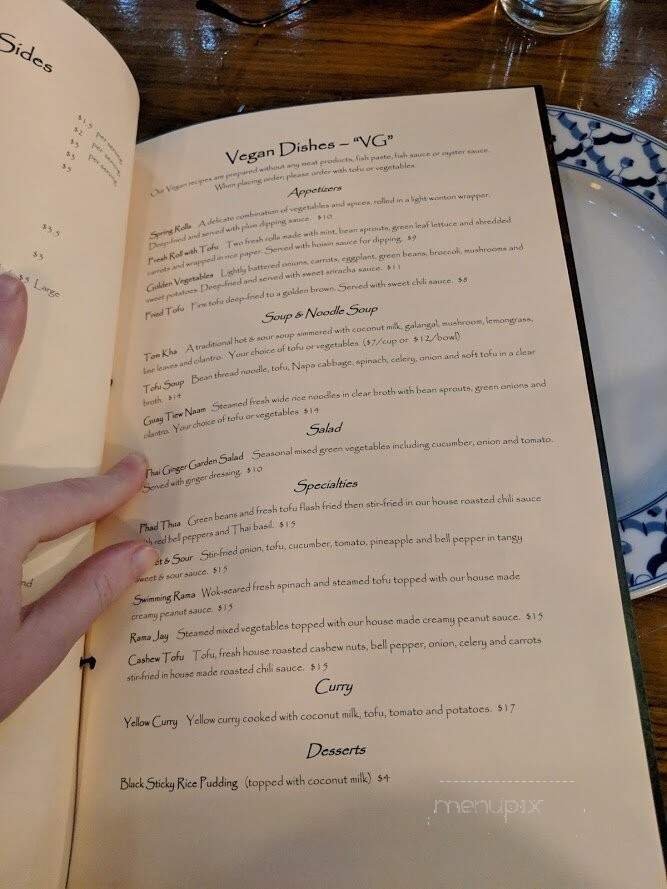 Sides
$1.5 per serving
$2 per serving
$3 per serving
$3
$5
$3.5
$3
$4 Large
nd
Vegan Dishes – "VG"
Our Vegan recipes are prepared without any meat products, fish paste, fish sauce or oyster sauce.
When placing order, please order with tofu or vegetables.
Appetizers
Spring Rolls A delicate combination of vegetables and spices, rolled in a light wonton wrapper.
Deep-fried and served with plum dipping sauce. $10
Fresh Roll with Tofu Two fresh rolls made with mint, bean sprouts, green leaf lettuce and shredded
carrots and wrapped in rice paper. Served with hoisin sauce for dipping. $9
Golden Vegetables Lightly battered onions, carrots, eggplant, green beans, broccoli, mushrooms and
sweet potatoes. Deep-fried and served with sweet sriracha sauce. $11
Fried Tofu Firm tofu deep-fried to a golden brown. Served with sweet chili sauce. $8
Soup & Noodle Soup
Tom Kha A traditional hot & sour soup simmered with coconut milk, galangal, mushroom, lemongrass,
lime leaves and cilantro. Your choice of tofu or vegetables. ($7/cup or $12/bowl)
Tofu Soup Bean thread noodle, tofu, Napa cabbage, spinach, celery, onion and soft tofu in a clear
broth. $14
Guay Tiew Naam Steamed fresh wide rice noodles in clear broth with bean sprouts, green onions and
cilantro. Your choice of tofu or vegetables $14
Salad
Thai Ginger Garden Salad Seasonal mixed green vegetables including cucumber, onion and tomato.
Served with ginger dressing. $10
Specialties
Phad Thua Green beans and fresh tofu flash fried then stir-fried in our house roasted chili sauce
with red bell peppers and Thai basil. $15
et & Sour Stir-fried onion, tofu, cucumber, tomato, pineapple and bell pepper in tangy
sweet & sour sauce. $15
Swimming Rama Wok-seared fresh spinach and steamed tofu topped with our house made
creamy peanut sauce. $15
Rama Jay Steamed mixed vegetables topped with our house made creamy peanut sauce. $15
Cashew Tofu Tofu, fresh house roasted cashew nuts, bell pepper, onion, celery and carrots
stir-fried in house made roasted chili sauce. $15
Curry
Yellow Curry Yellow curry cooked with coconut milk, tofu, tomato and potatoes. $17
Desserts
Black Sticky Rice Pudding (topped with coconut milk) $4
menupix